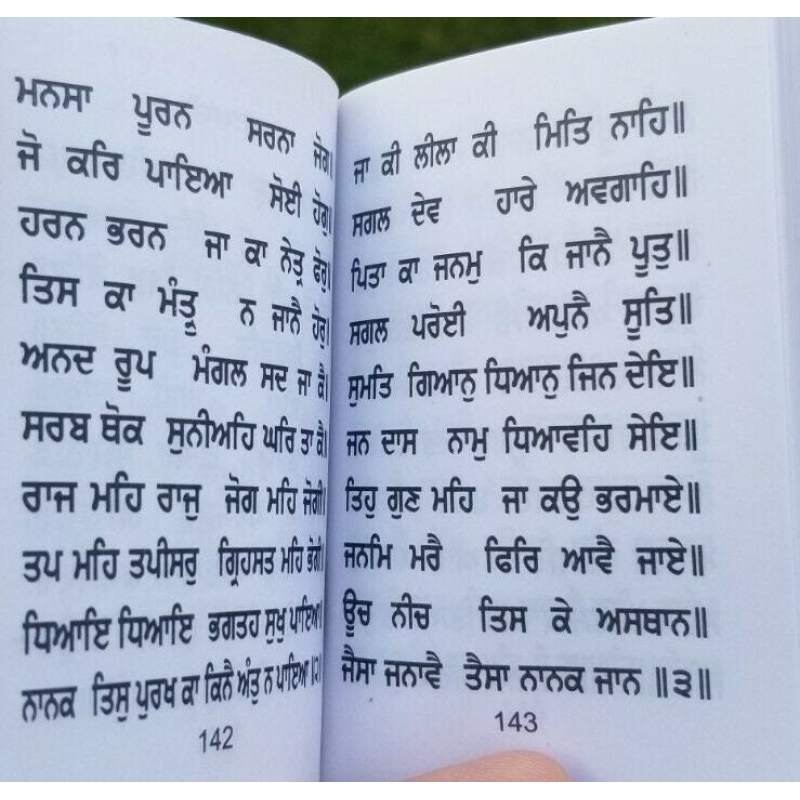 ਮਨਸਾ ਪੂਰਨ ਸਰਨਾ ਜੋਗ॥
ਜੋ ਕਰਿ ਪਾਇਆ ਸੋਈ ਹੋਗੁ॥
ਹਰਨ ਭਰਨ ਜਾ ਕਾ ਨੇਤ੍ਰ ਫੋਰੁ॥
ਤਿਸ ਕਾ ਮੰਤ੍ਰੁ ਨ ਜਾਨੈ ਹੋਰੁ॥
ਅਨਦ ਰੂਪ ਮੰਗਲ ਸਦ ਜਾ ਕੈ॥
ਸਰਬ ਥੋਕ ਸੁਨੀਅਹਿ ਘਰਿ ਤਾ ਕੈ॥
ਰਾਜ ਮਹਿ ਰਾਜੁ ਜੋਗ ਮਹਿ ਜੋਗੀ॥
ਤਪ ਮਹਿ ਤਪੀਸਰੁ ਗ੍ਰਿਹਸਤ ਮਹਿ ਭੋਗੀ॥
ਧਿਆਇ ਧਿਆਇ ਭਗਤਹ ਸੁਖੁ ਪਾਇਆ॥
ਨਾਨਕ ਤਿਸੁ ਪੁਰਖ ਕਾ ਕਿਨੈ ਅੰਤੁ ਨ ਪਾਇਆ॥੨॥
142
ਜਾ ਕੀ ਲੀਲਾ ਕੀ ਮਿਤਿ ਨਾਹਿ॥
ਸਗਲ ਦੇਵ ਹਾਰੇ ਅਵਗਾਹਿ॥
ਪਿਤਾ ਕਾ ਜਨਮੁ ਕਿ ਜਾਨੈ ਪੂਤੁ॥
ਸਗਲ ਪਰੋਈ ਅਪੁਨੈ ਸੂਤਿ॥
ਸੁਮਤਿ ਗਿਆਨੁ ਧਿਆਨੁ ਜਿਨ ਦੇਇ॥
ਜਨ ਦਾਸ ਨਾਮੁ ਧਿਆਵਹਿ ਸੇਇ॥
ਤਿਹੁ ਗੁਣ ਮਹਿ ਜਾ ਕਉ ਭਰਮਾਏ॥
ਜਨਮਿ ਮਰੈ ਫਿਰਿ ਆਵੈ ਜਾਏ॥
ਊਚ ਨੀਚ ਤਿਸ ਕੇ ਅਸਥਾਨ॥
ਜੈਸਾ ਜਨਾਵੈ ਤੈਸਾ ਨਾਨਕ ਜਾਨ ॥੩॥
143